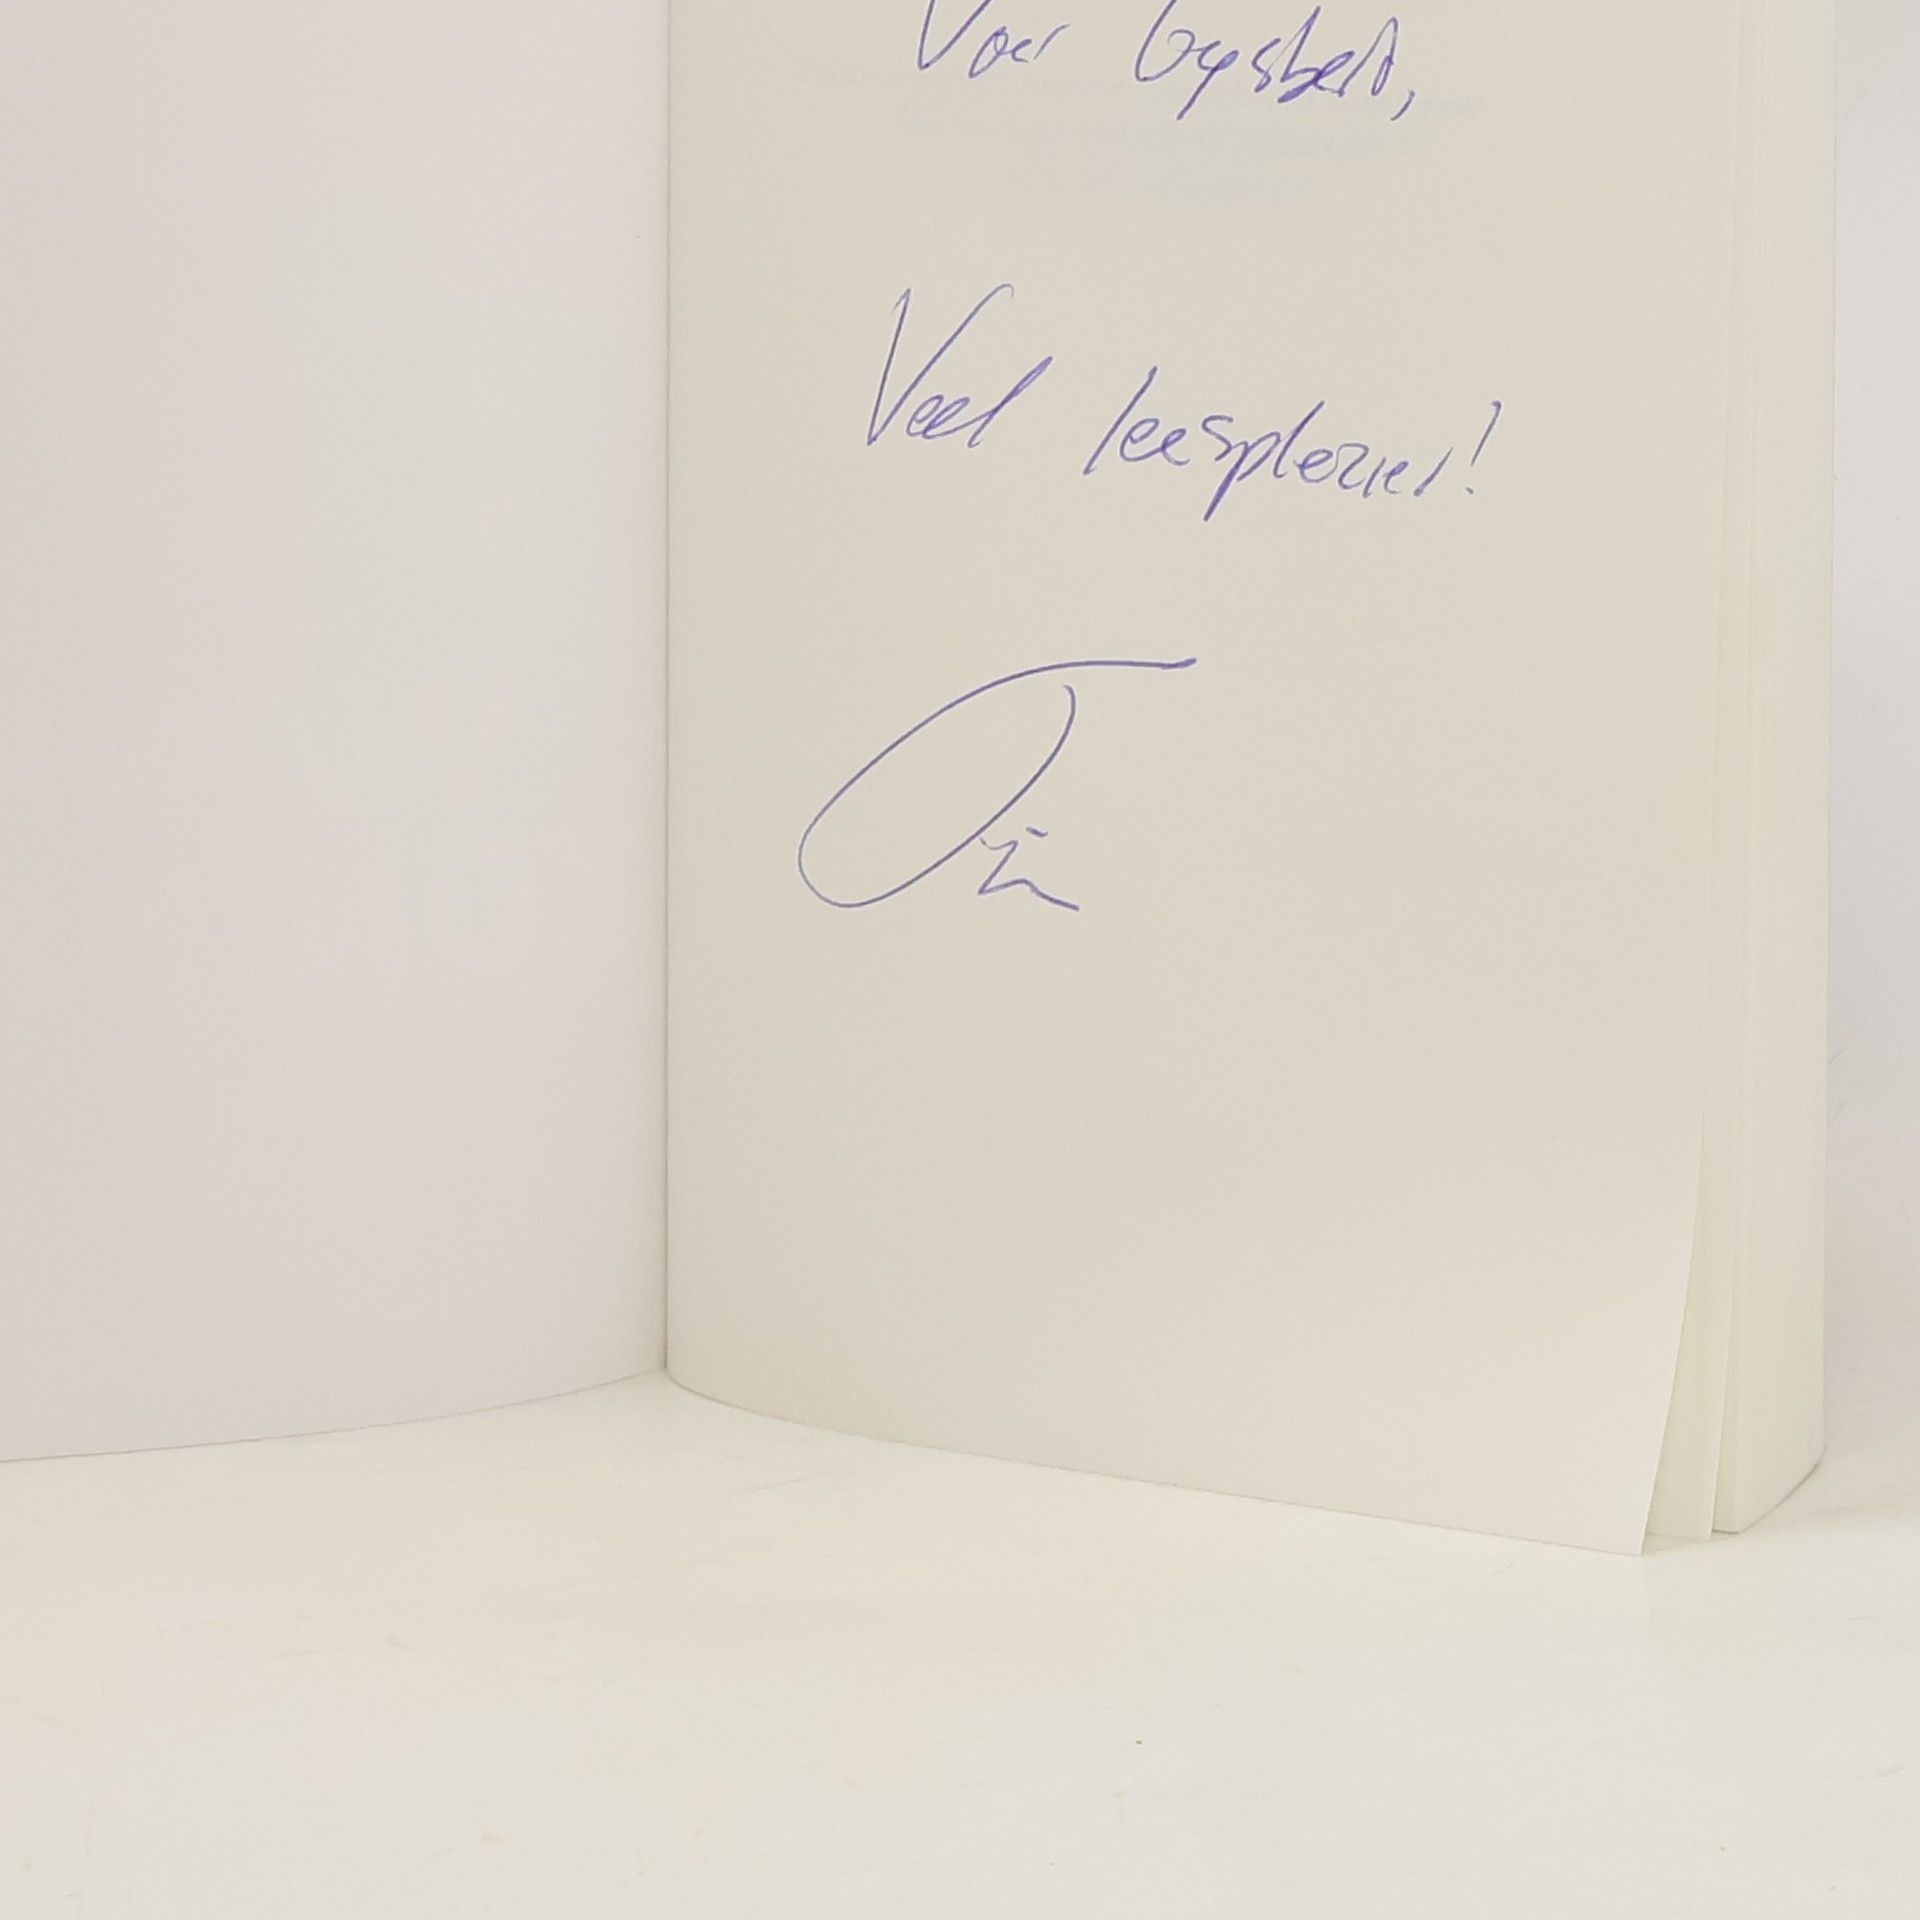 Voor Gijsbert,
Veel leesplezier!